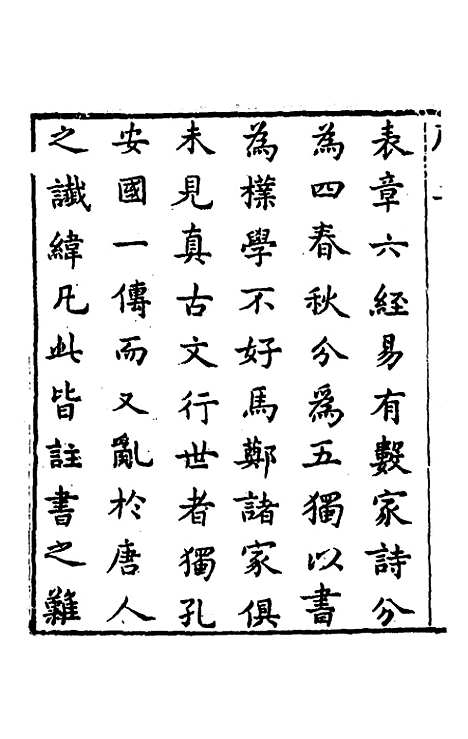 表章六經易有數家詩分
為四春秋分為五獨以書
為樸學不好馬鄭諸家俱
未見真古文行世者獨孔
安國一傳而又亂於唐人
之讖緯凡此皆註書之難